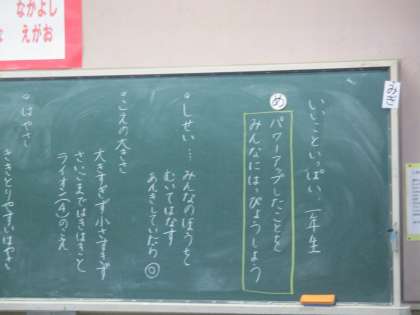 なかよし
えがお
みぎ
いいこといっぱい 一年生
め
パワーアップしたことを
みんなにはっぴょうしよう
・しせい…みんなのほうを
むいてはなす
あんきしていたら◎
・こえの大きさ
大きすぎず小さすぎず
さいごまではきはきと
ライオン(4)のこえ
・はやさ
ききとりやすいはやさ